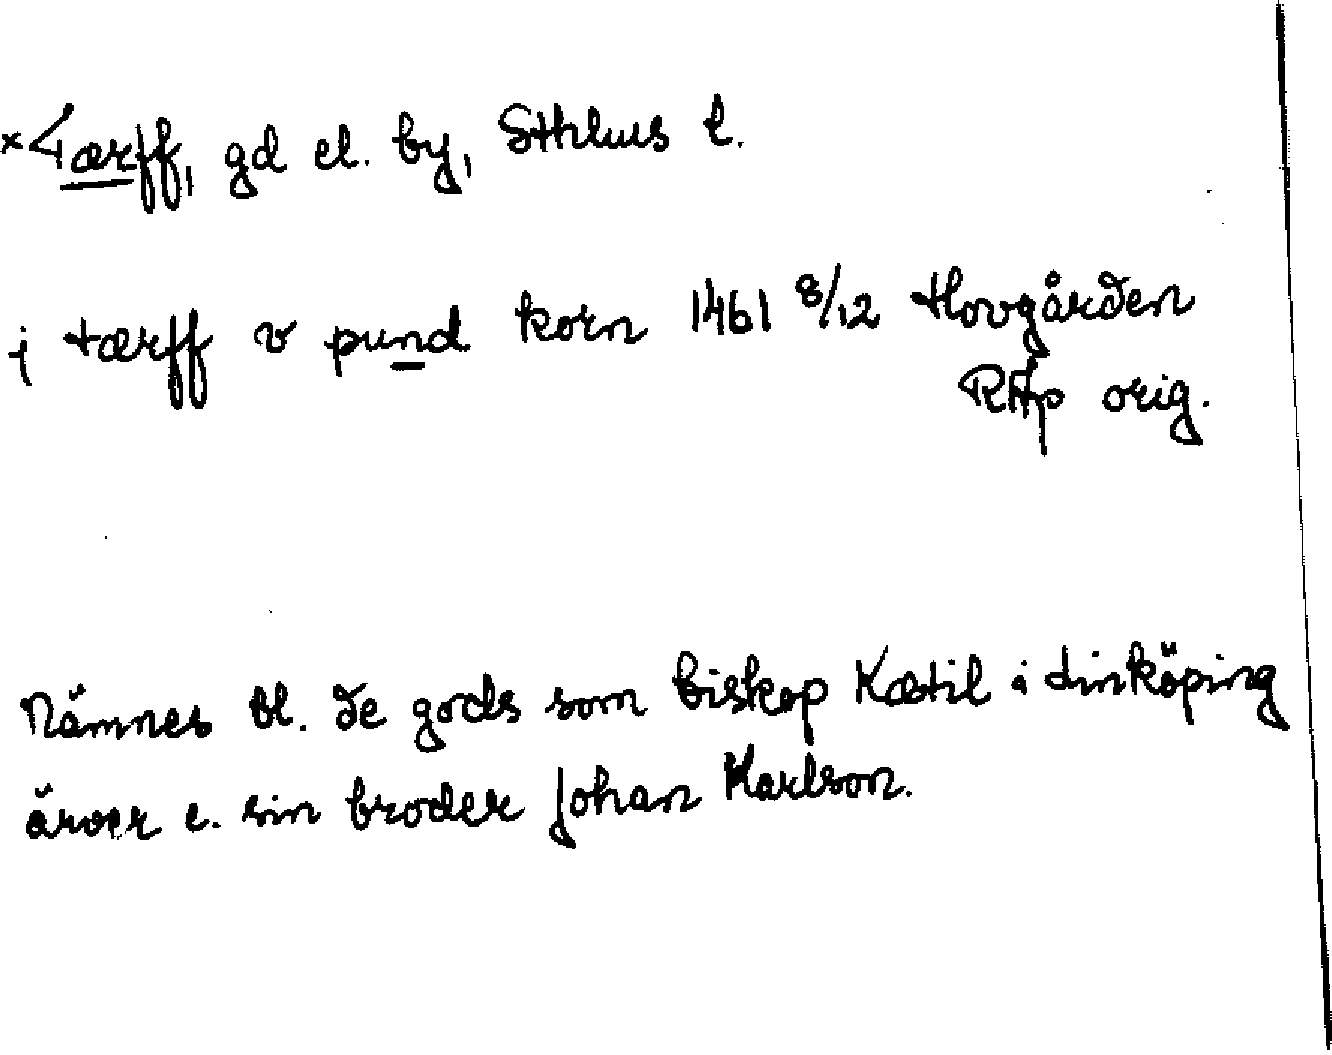 ×<Tærff, gd el. by, Sthlms l.
j tærff v pund korn 1461 8/12 Hovgården
RAp orig.
Nämnes bl. de gods som biskop Kætil i Linköping
ärver e. sin broder Johan Karlson.